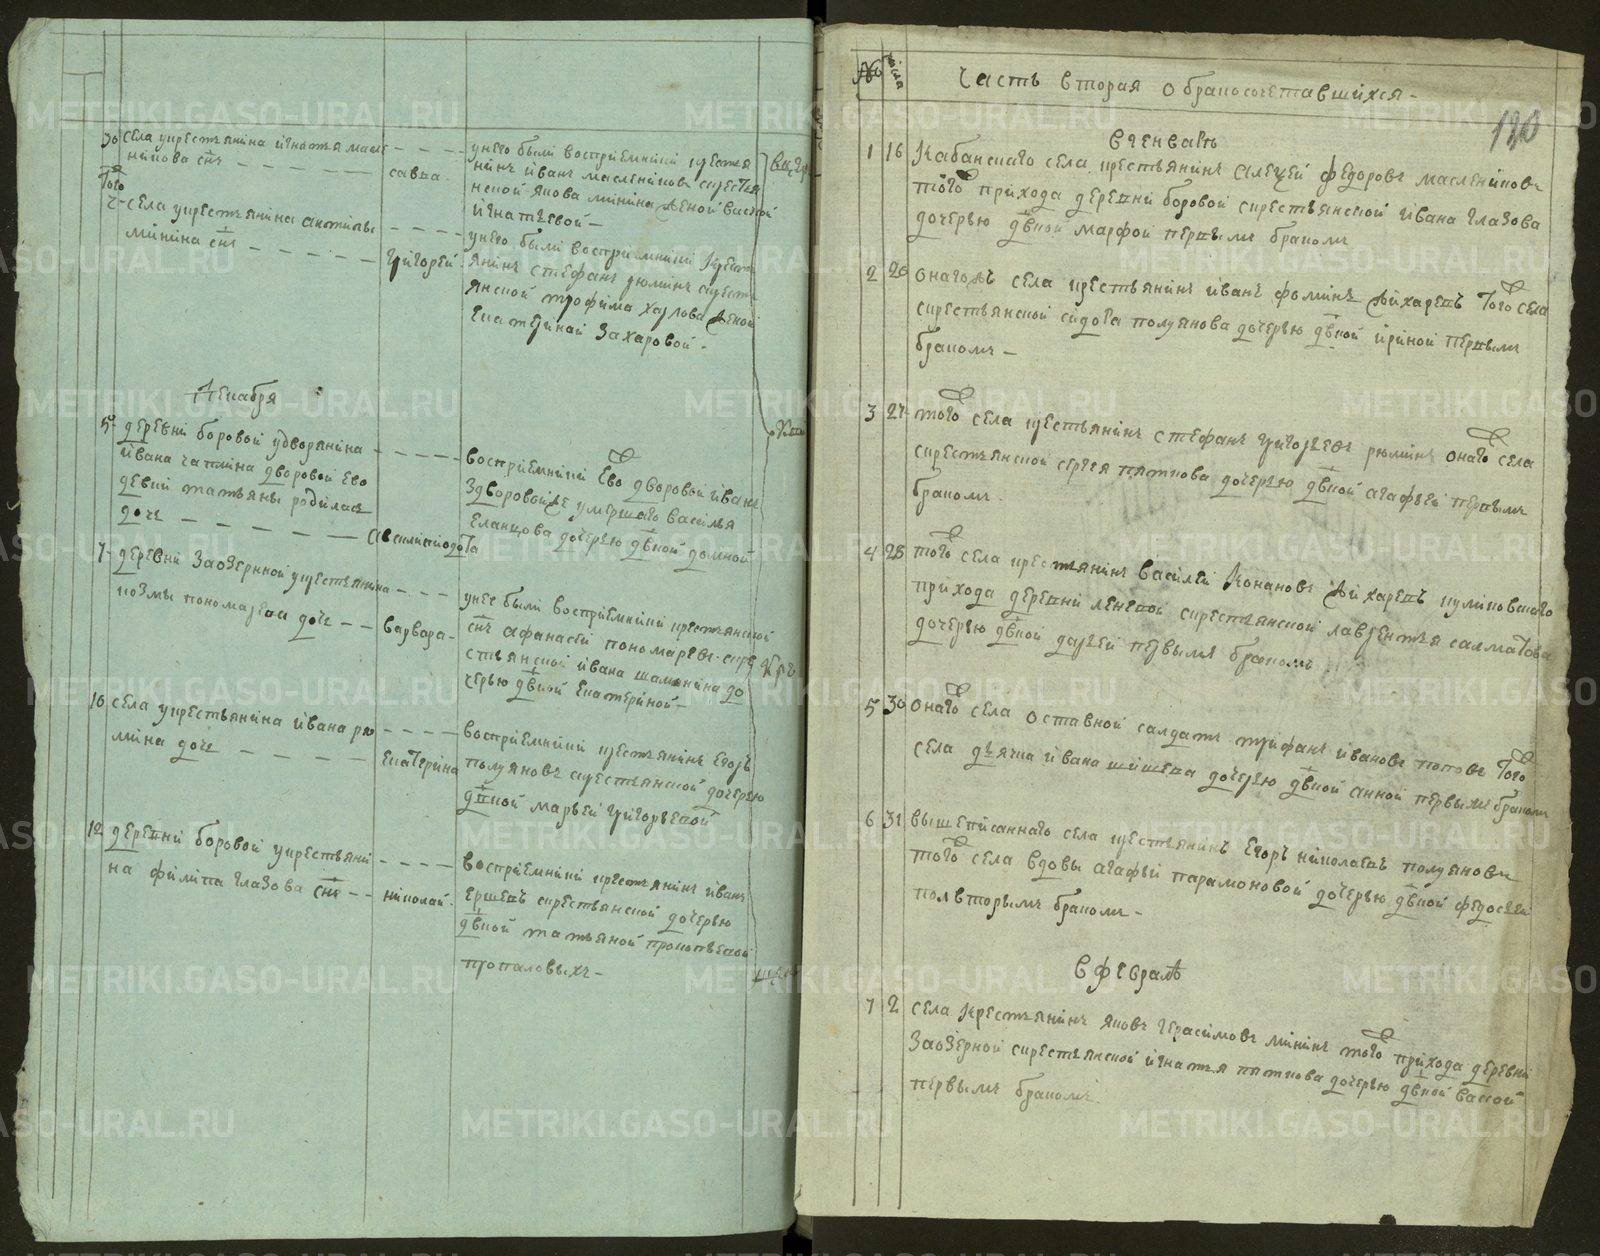 30 села крестьянина игнатья масле
никова снъ савва
у него были восприемники крестья
нинъ иванъ маслениковъ скрестья
нской якова минина женой васой
игнатьевой
того
2 села укрестьянина
минина снъ григорей
у него были восприемники крестья
янинъ стефанъ рюминъ скресть
янской трофима харлова женой
екатериной захаровой
декабря
5 деревни боровой удворянина
ивана чаплина дворовой ево
девки татьяны родилась
дочь
восприемники ево дворовой иванъ
здворовойже умершаго василья
еланцова дочерью двкой домной
7 деревни заозерной укрестьянина
козмы пономарева дочь варвара
у нее были восприемники крестьянской
снъ афанасей пономаревъ скре
стьянской ивана шаманина до
черью двкой екатериной
10 села укрестьянина ивана рю
мина дочь екатерина
восприемники крестьянинъ егоръ
полуяновъ скрестьянской дочерью
двкой марьей григорьевой
12 деревни боровой укрестьяни
на филипа глазова снъ николай
восприемники крестьянинъ иванъ
ершевъ скрестьянской дочерью
двкой татьяной прокопьевой
пропаловыхъ
№ числа
часть вторая о бракосочетавшихся
190
вгенваръ
1 16 кабанскаго села крестьянинъ алексей федоровъ маслениковъ
того прихода деревни боровой скрестьянской ивана глазова
дочерью двкой марфой первымъ бракомъ
2 20 онагожъ села крестьянинъ иванъ фоминъ жихаревъ того села
скрестьянской сидора полуянова дочерью двкой ириной первымъ
бракомъ
3 27 того села крестьянинъ стефанъ григорьевъ рюминъ онаго села
скрестьянской сергея пяткова дочерью двкой агафьей первымъ
бракомъ
4 28 того села крестьянинъ василей конановъ жихаревъ куликовскаго
прихода деревни леневой скрестьянской лаврентья салматова
дочерью двкой дарьей первымъ бракомъ
5 30 онаго села оставной салдатъ трифанъ ивановъ поповъ того
села дьячка ивана шишева дочерью двкой анной первымъ бракомъ
6 31 вышеписаннаго села крестьянинъ егоръ николаевъ полуяновъ
того села вдовы агафьи парамоновой дочерью двкой федосьей
полвторымъ бракомъ
вфевралѣ
7 2 села крестьянинъ яковъ герасимовъ мининъ того прихода деревни
заозерной скрестьянской игнатья пяткова дочерью двкой васой
первымъ бракомъ
METRIKI.GASO-URAL.RU